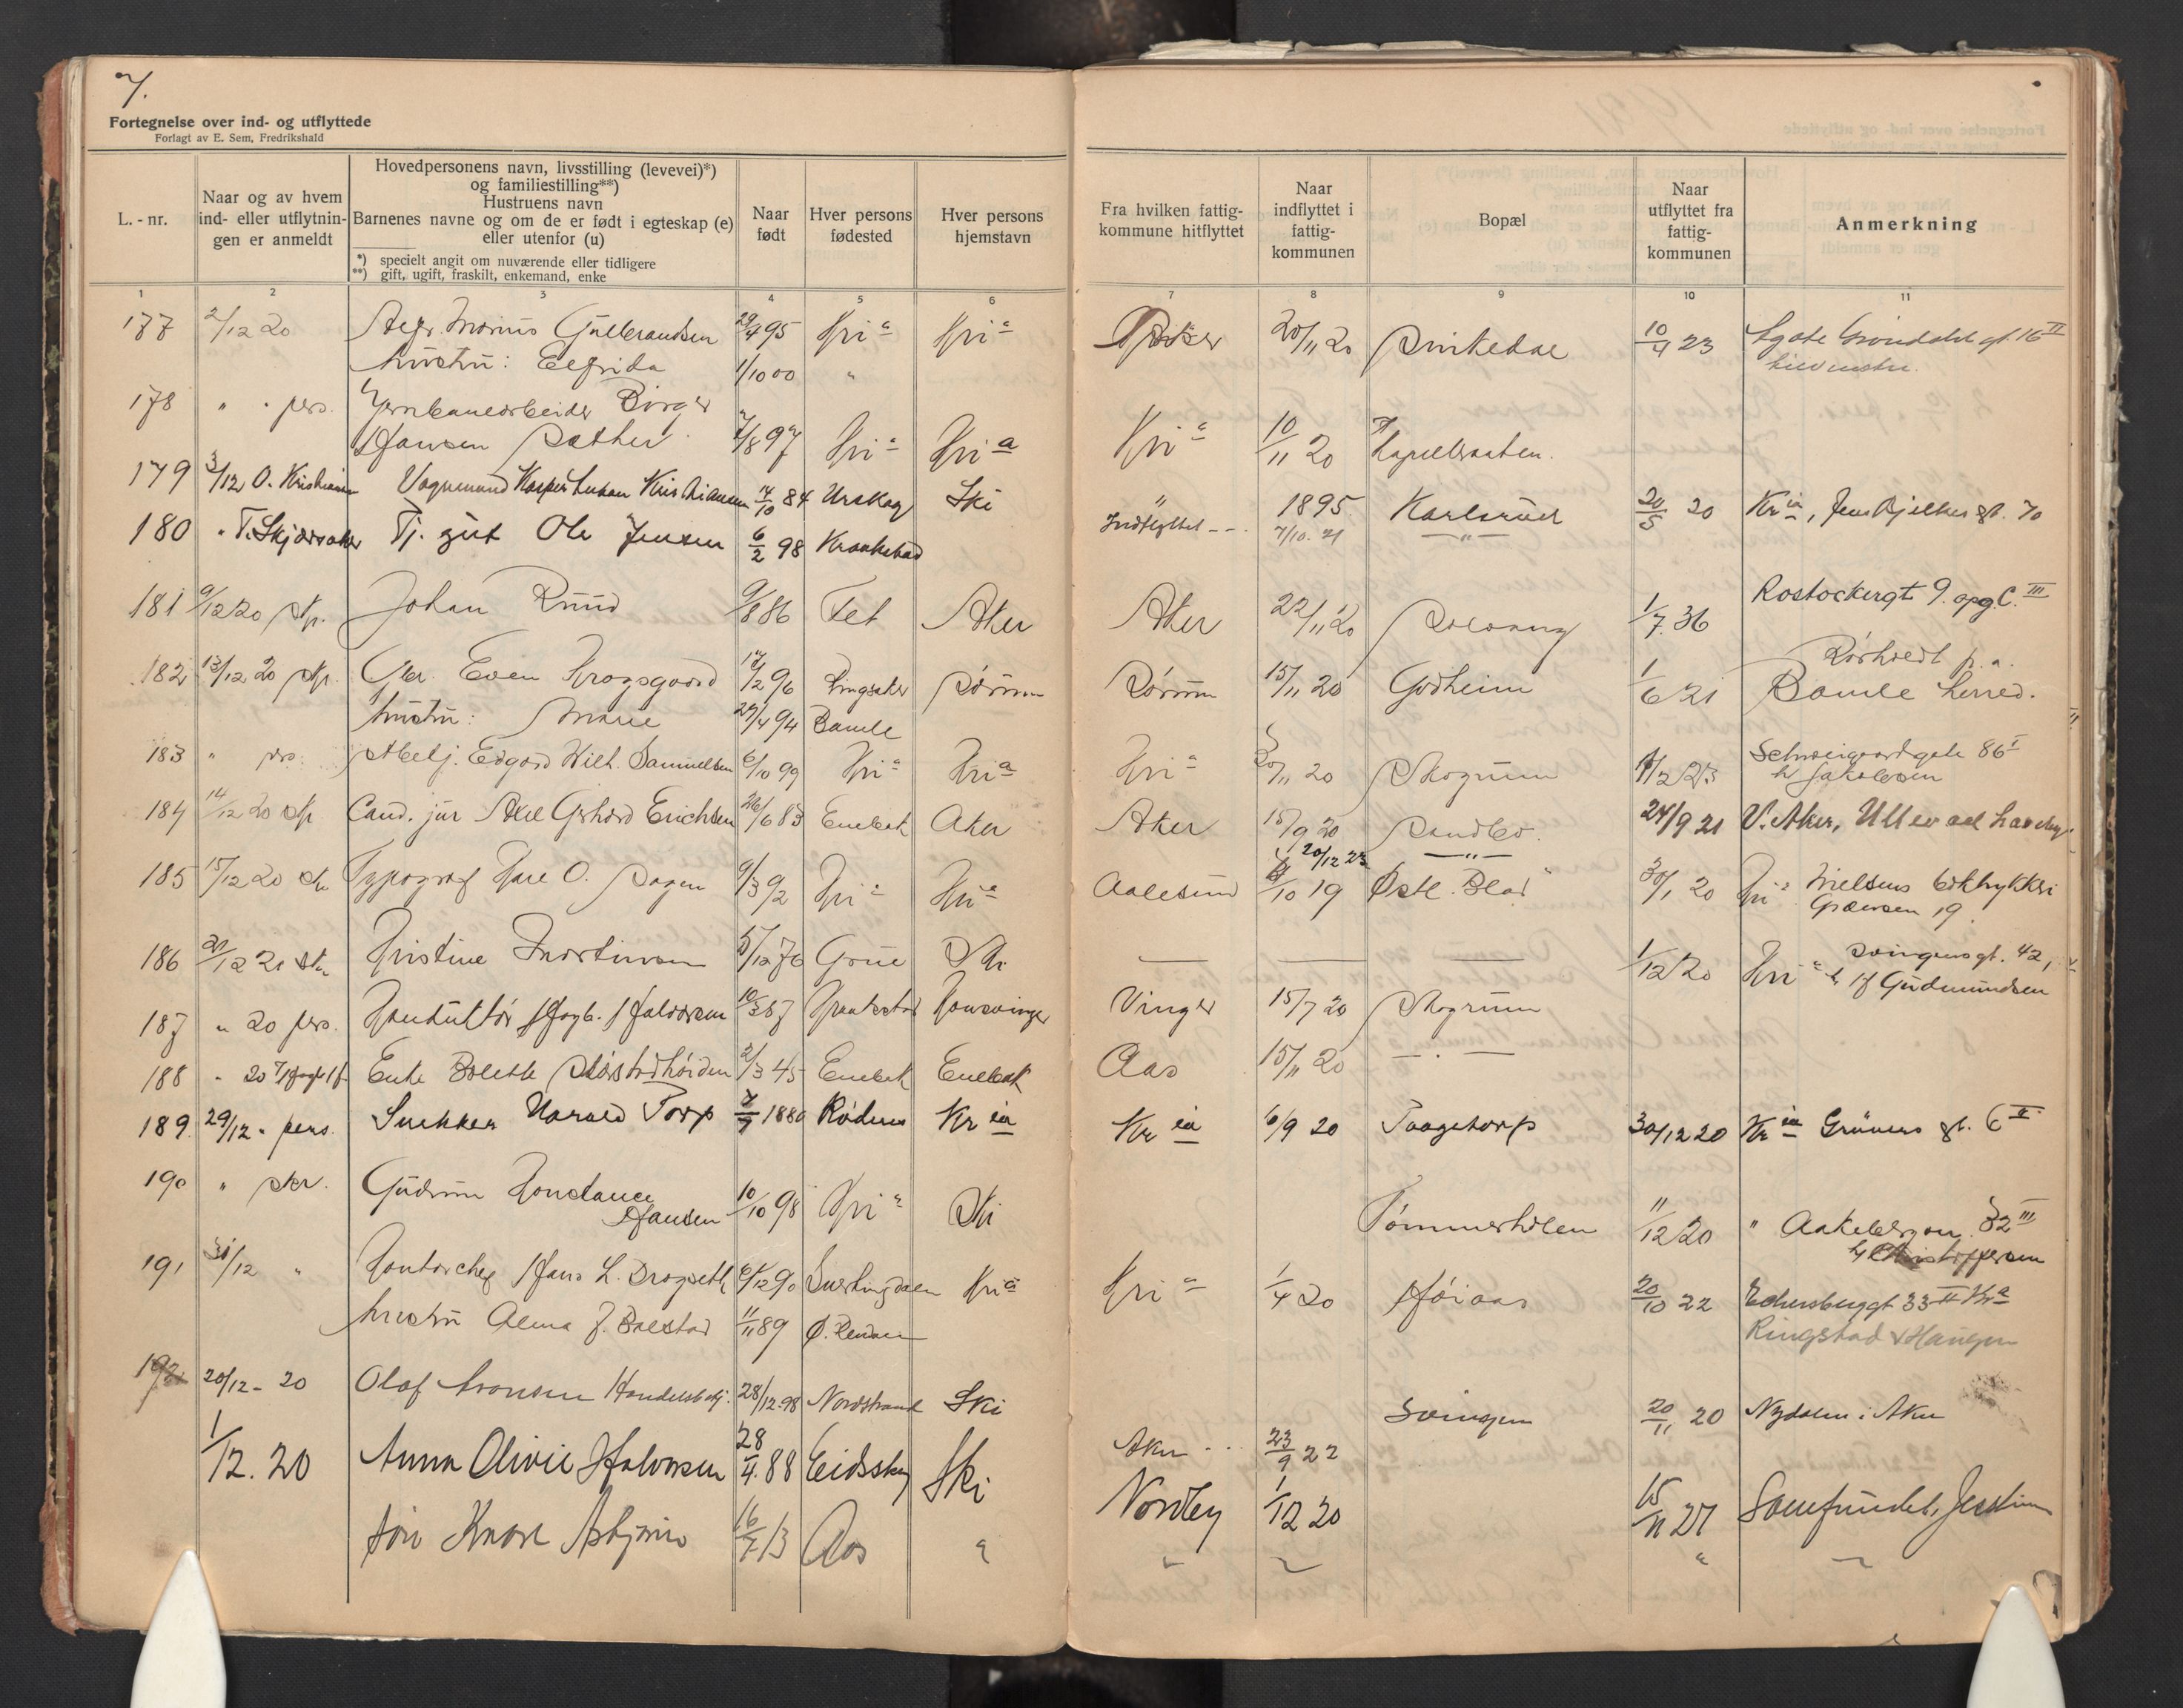 7.
Fortegnelse over ind- og utflyttede
Forlagt av E. Sem, Fredrikshald
L. - nr.
Naar og av hvem ind- eller utflytnin- gen er anmeldt
Hovedpersonens navn, livsstilling (levevei)*)
og familiestilling**)
Hustruens navn
Barnenes navne og om de er født i egteskap (e)
eller utenfor (u)
*) specielt angit om nuværende eller tidligere
**) gift, ugift, fraskilt, enkemand, enke
Naar født
Hver persons fødested
Hver persons hjemstavn
Fra hvilken fattig- kommune hitflyttet
Naar indflyttet i fattig- kommunen
Bopæl
Naar utflyttet fra fattig- kommunen
Anmerkning
1 2 3 4 5 6 7 8 9 10 11
177 2/12 20 Marius Gulbrandsen 29/4 95 Kria Kria Aker 20/11 20 10/4 23 16 II
hustru: Elfrida 1/10 00 "
178 " " pers. Jernbanearbeider Birger
Hansen Sæther 7/8 97 Kria Kria Kria 10/11 20 Kapelbraaten.
179 3/12 O. Kristiansen Vognmand Kasper Johan Kristiansen 14/10 84 Urskog Ski " 1895 Karlsrud 20/5 20 Kria, Jens Bjelkes gt. 70
180 " T. Skjærsaker Tj. gut Ole Jensen 6/2 98 Kraakstad Indflyttet 7/10. 21 "
181 9/12 20 Johan Ruud 9/8 86 Fet Aker Aker 22/11 20 Solvang 1/7 36 Rostockergt. 9. opg. C. III
182 13/12 20 Even Krogsgaard 17/2 96 Ringsaker Sørum Sørum 15/11 20 Godheim 1/6 21 Rørholt p. a. Bamle herred.
hustru: Marie 27/4 94 Bamle
183 " pers. Edgard Wilh. Samuelsen 6/10 99 Kria Kria Kria 20/11 20 Skogrum 1/2 23 Schweigaardsgate 86 I
h/ Jakobsen
184 14/12 20 Cand. jur Axel Gerhard Erichsen 26/6 83 Enebak Aker Aker 15/9 20 Sandbo. 24/9 21 V. Aker, Ullevaal haveby.
20/12 23 "
185 15/12 20 Typograf Kare O. Hagen 9/3 92 Kria Kria Aalesund 10 19 Østl. Blad 30/1 20 Kria Nielsens boktrykkeri
Grænsen 19
186 21/12 21 Kristine Martinsen 12 76 Grue Ski — — — 1/12 20 Kria Svingensgt. 42,
h/ Gudmundsen
187 " 20 pers. Konduktør Halvorsen 10/3 87 Kraakstad Kongsvinger Vinger 15/7 20 Skogrum
188 " 20 Enke Bolette 2/3 45 Enebak Enebak Aas 15/11 20 — " —
189 29/12 " pers. Snekker Harald Torp 7 1880 Rødenes Kria Kria 6/9 20 Taagetorp 30/12 20 Kria Grüners gt. 6 II
190 " Gudrun Konstance
Hansen 10/10 98 Kria Ski Tømmerholen 11/12 20 " Aakebergvn. 32 III
h/ Christoffersen
191 31/12 " Kontorchef Hans L. Drogseth 6/12 90 Svartingdalen Kria Kria 1/4 20 Høiaas 20/10 22 Eckersbergsgt 33 II Kria
hustru Alma J. Balstad 11/11 89 Ø. Rendalen Ringstad & Haugen
192 20/12 - 20 Olaf Aronsen Handelsbetj. 28/12. 98 Nordstrand Ski Svingen 20/11 20 Nydalen i Aker
Aker 23/9 22
1/12. 20 Anna Olivie Halvorsen 28/4. 88 Eidsskog Ski Nordby 1/12 20 15/11 27 Samfundet, Jessheim
søn Knare Asbjørn 16/7 13 Aas " " " "